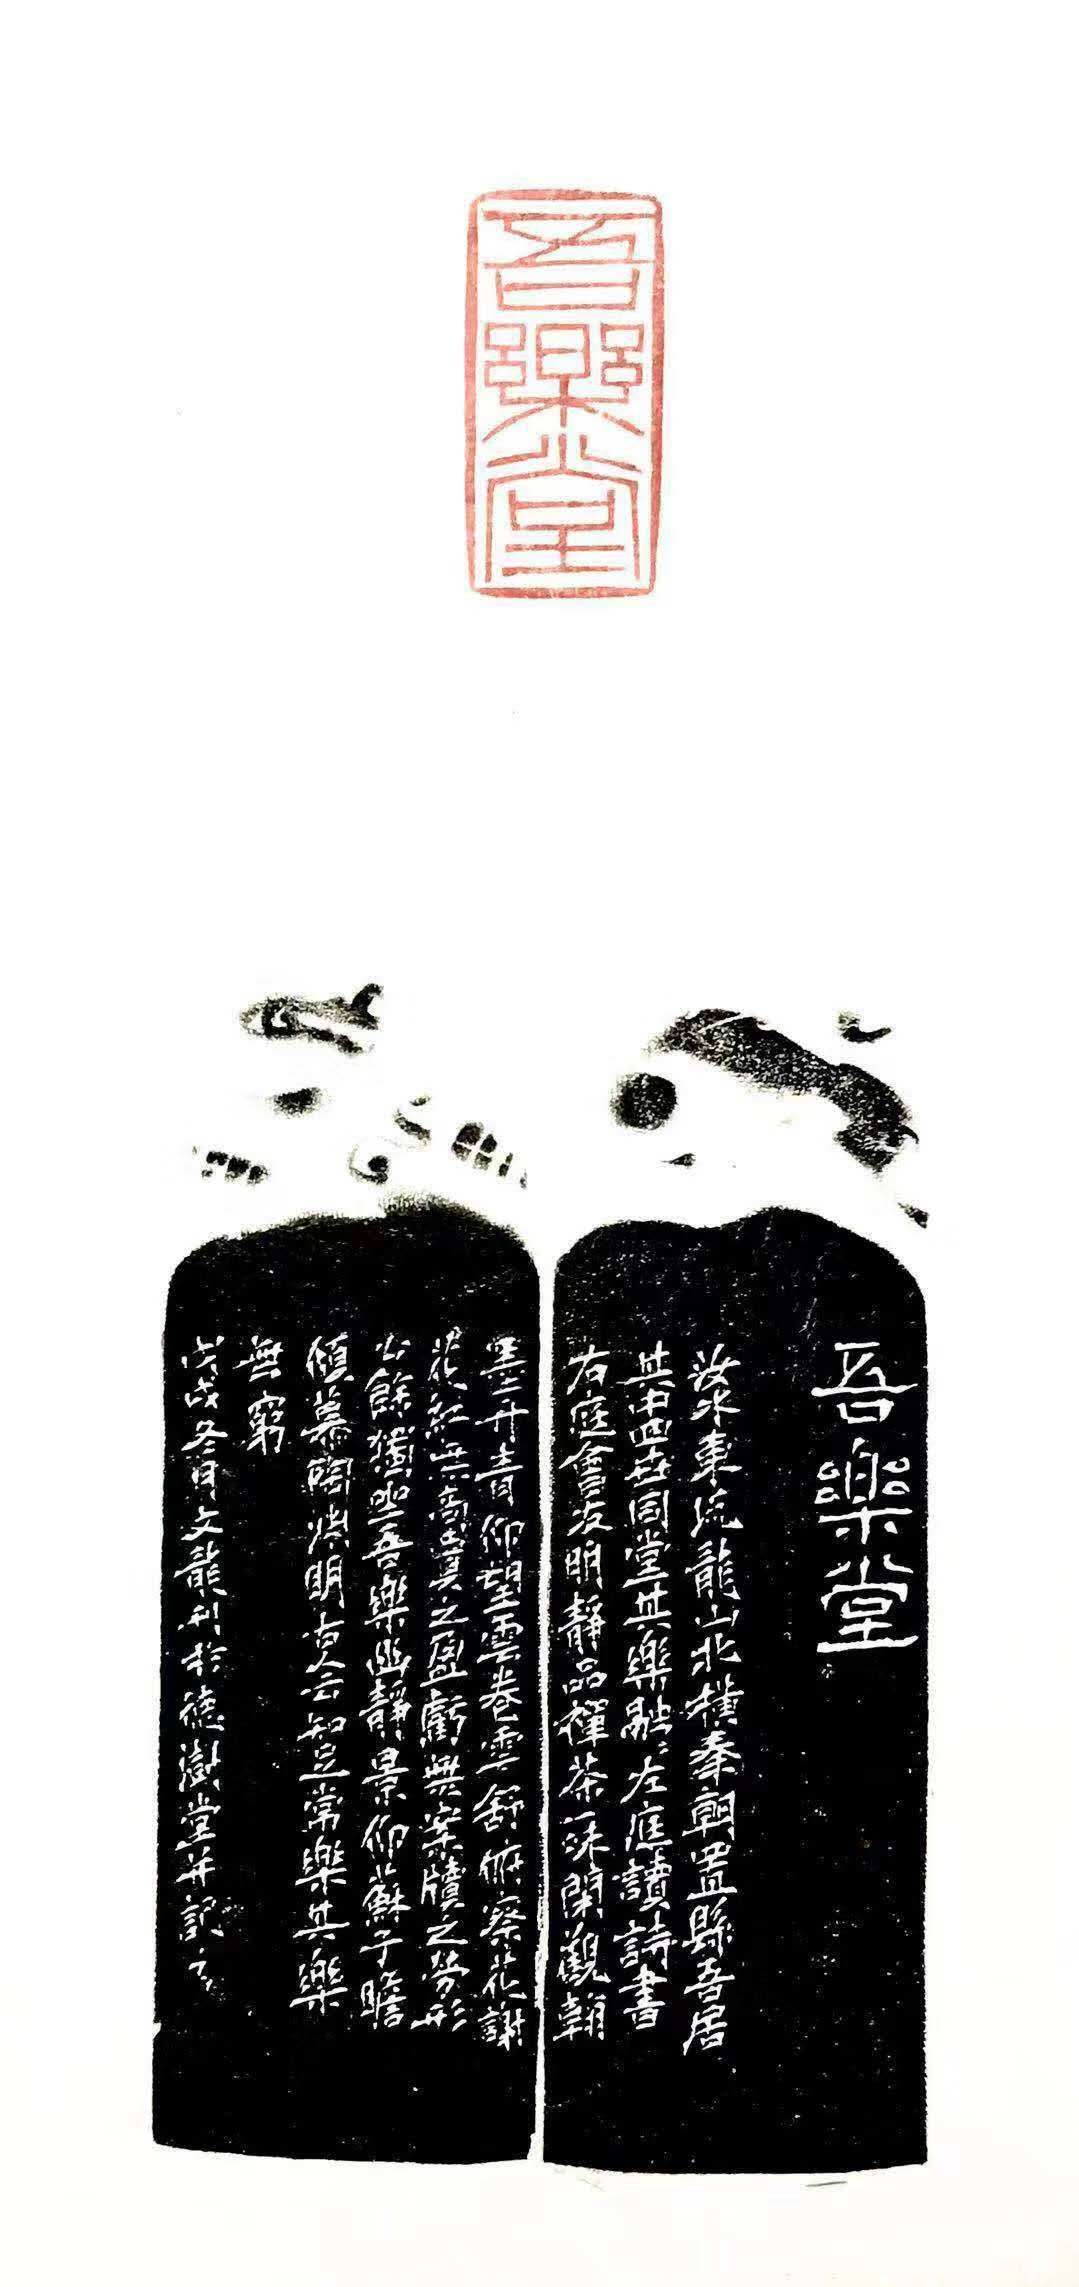 吾樂堂
吾樂堂
汝水東流龍山北横秦朝置縣吾居
其中四世同堂其樂融々左庭讀詩書
右庭會友明靜品禪茶沐閑觀朝
墨丹青仰望雲卷雲舒俯察花謝
花紅無高貴之盈虧無案牘之勞形
公餘獨坐吾樂幽靜景仰蘇子瞻
傾慕陶淵明古人云知足常樂其樂
無窮
戊戌冬日文龍刊於德澍堂并記之